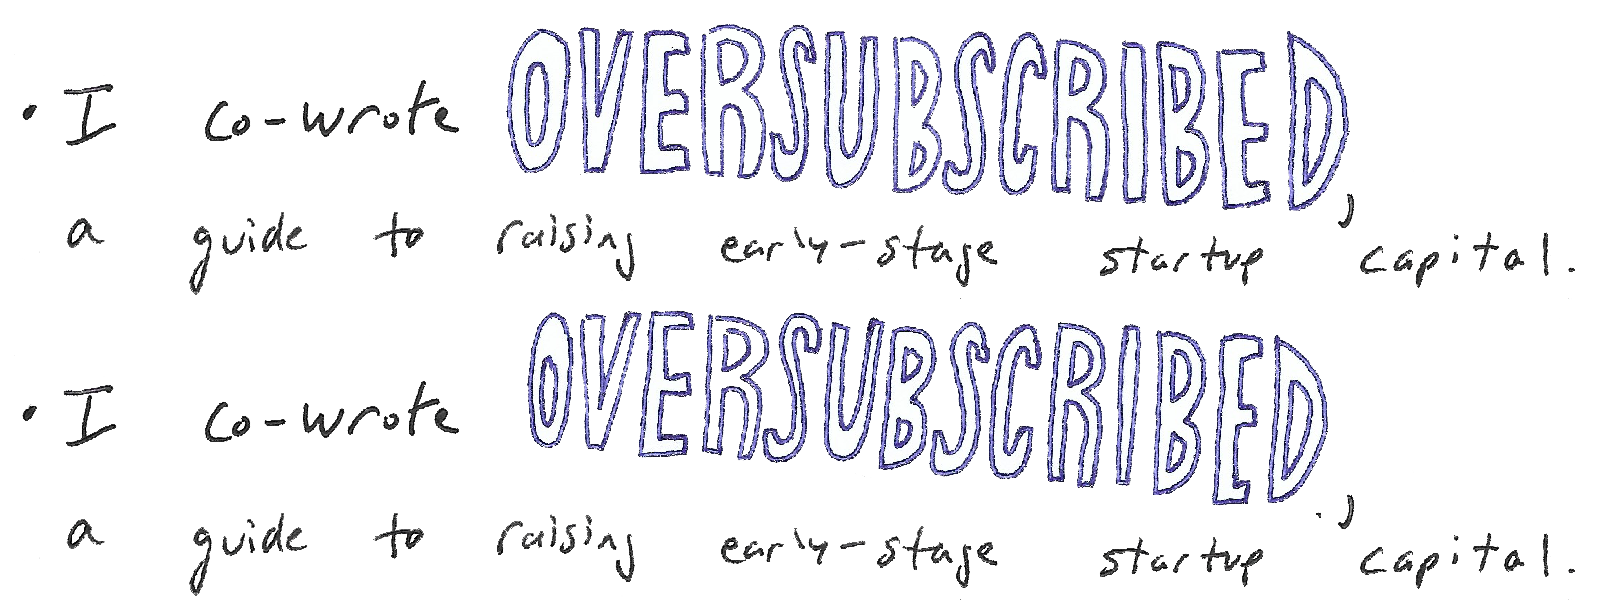 • I co-wrote OVERSUBSCRIBED,
a guide to raising early-stage startup capital.
• I co-wrote OVERSUBSCRIBED,
a guide to raising early-stage startup capital.